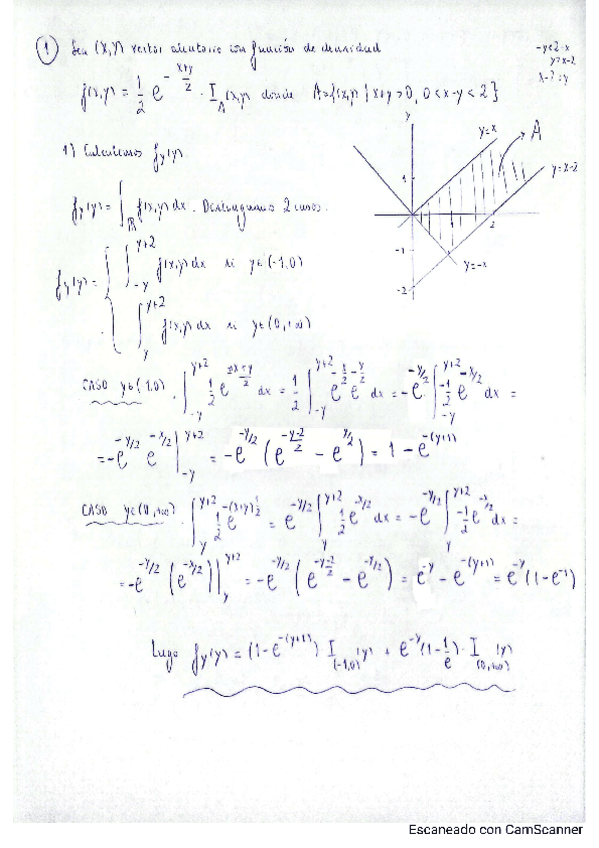 ① Sea (X,Y) vector aleatorio con función de densidad
-y<2-x
y>x-2
x-2<y
f(x,y) = 1/2 e^{-(x+y)/2} · I_A(x,y) donde A={(x,y) | x+y>0, 0<x-y<2}
y
y=x
A
y=x-2
1
2
-1
y=-x
-2
1) Calculamos f_Y(y)
f_Y(y) = ∫_ℝ f(x,y) dx. Distinguimos 2 casos.
f_Y(y) = { ∫_{-y}^{y+2} f(x,y) dx si y∈(-1,0)
∫_{y}^{y+2} f(x,y) dx si y∈(0,+∞)
CASO y∈(-1,0). ∫_{-y}^{y+2} 1/2 e^{-(x+y)/2} dx = 1/2 ∫_{-y}^{y+2} e^{-x/2} e^{-y/2} dx = -e^{-y/2} ∫_{-y}^{y+2} -1/2 e^{-x/2} dx =
= -e^{-y/2} e^{-x/2} |_{-y}^{y+2} = -e^{-y/2} (e^{(-y-2)/2} - e^{y/2}) = 1 - e^{-(y+1)}
CASO y∈(0,+∞). ∫_{y}^{y+2} 1/2 e^{-(x+y)1/2} = e^{-y/2} ∫_{y}^{y+2} 1/2 e^{-x/2} dx = -e^{-y/2} ∫_{y}^{y+2} -1/2 e^{-x/2} dx =
= -e^{-y/2} (e^{-x/2}) |_{y}^{y+2} = -e^{-y/2} (e^{(-y-2)/2} - e^{-y/2}) = e^{-y} - e^{-(y+1)} = e^{-y} (1-e^{-1})
Luego f_Y(y) = (1-e^{-(y+1)}) I_{(-1,0)}(y) + e^{-y} (1-1/e) · I_{(0,+∞)}(y)
Escaneado con CamScanner